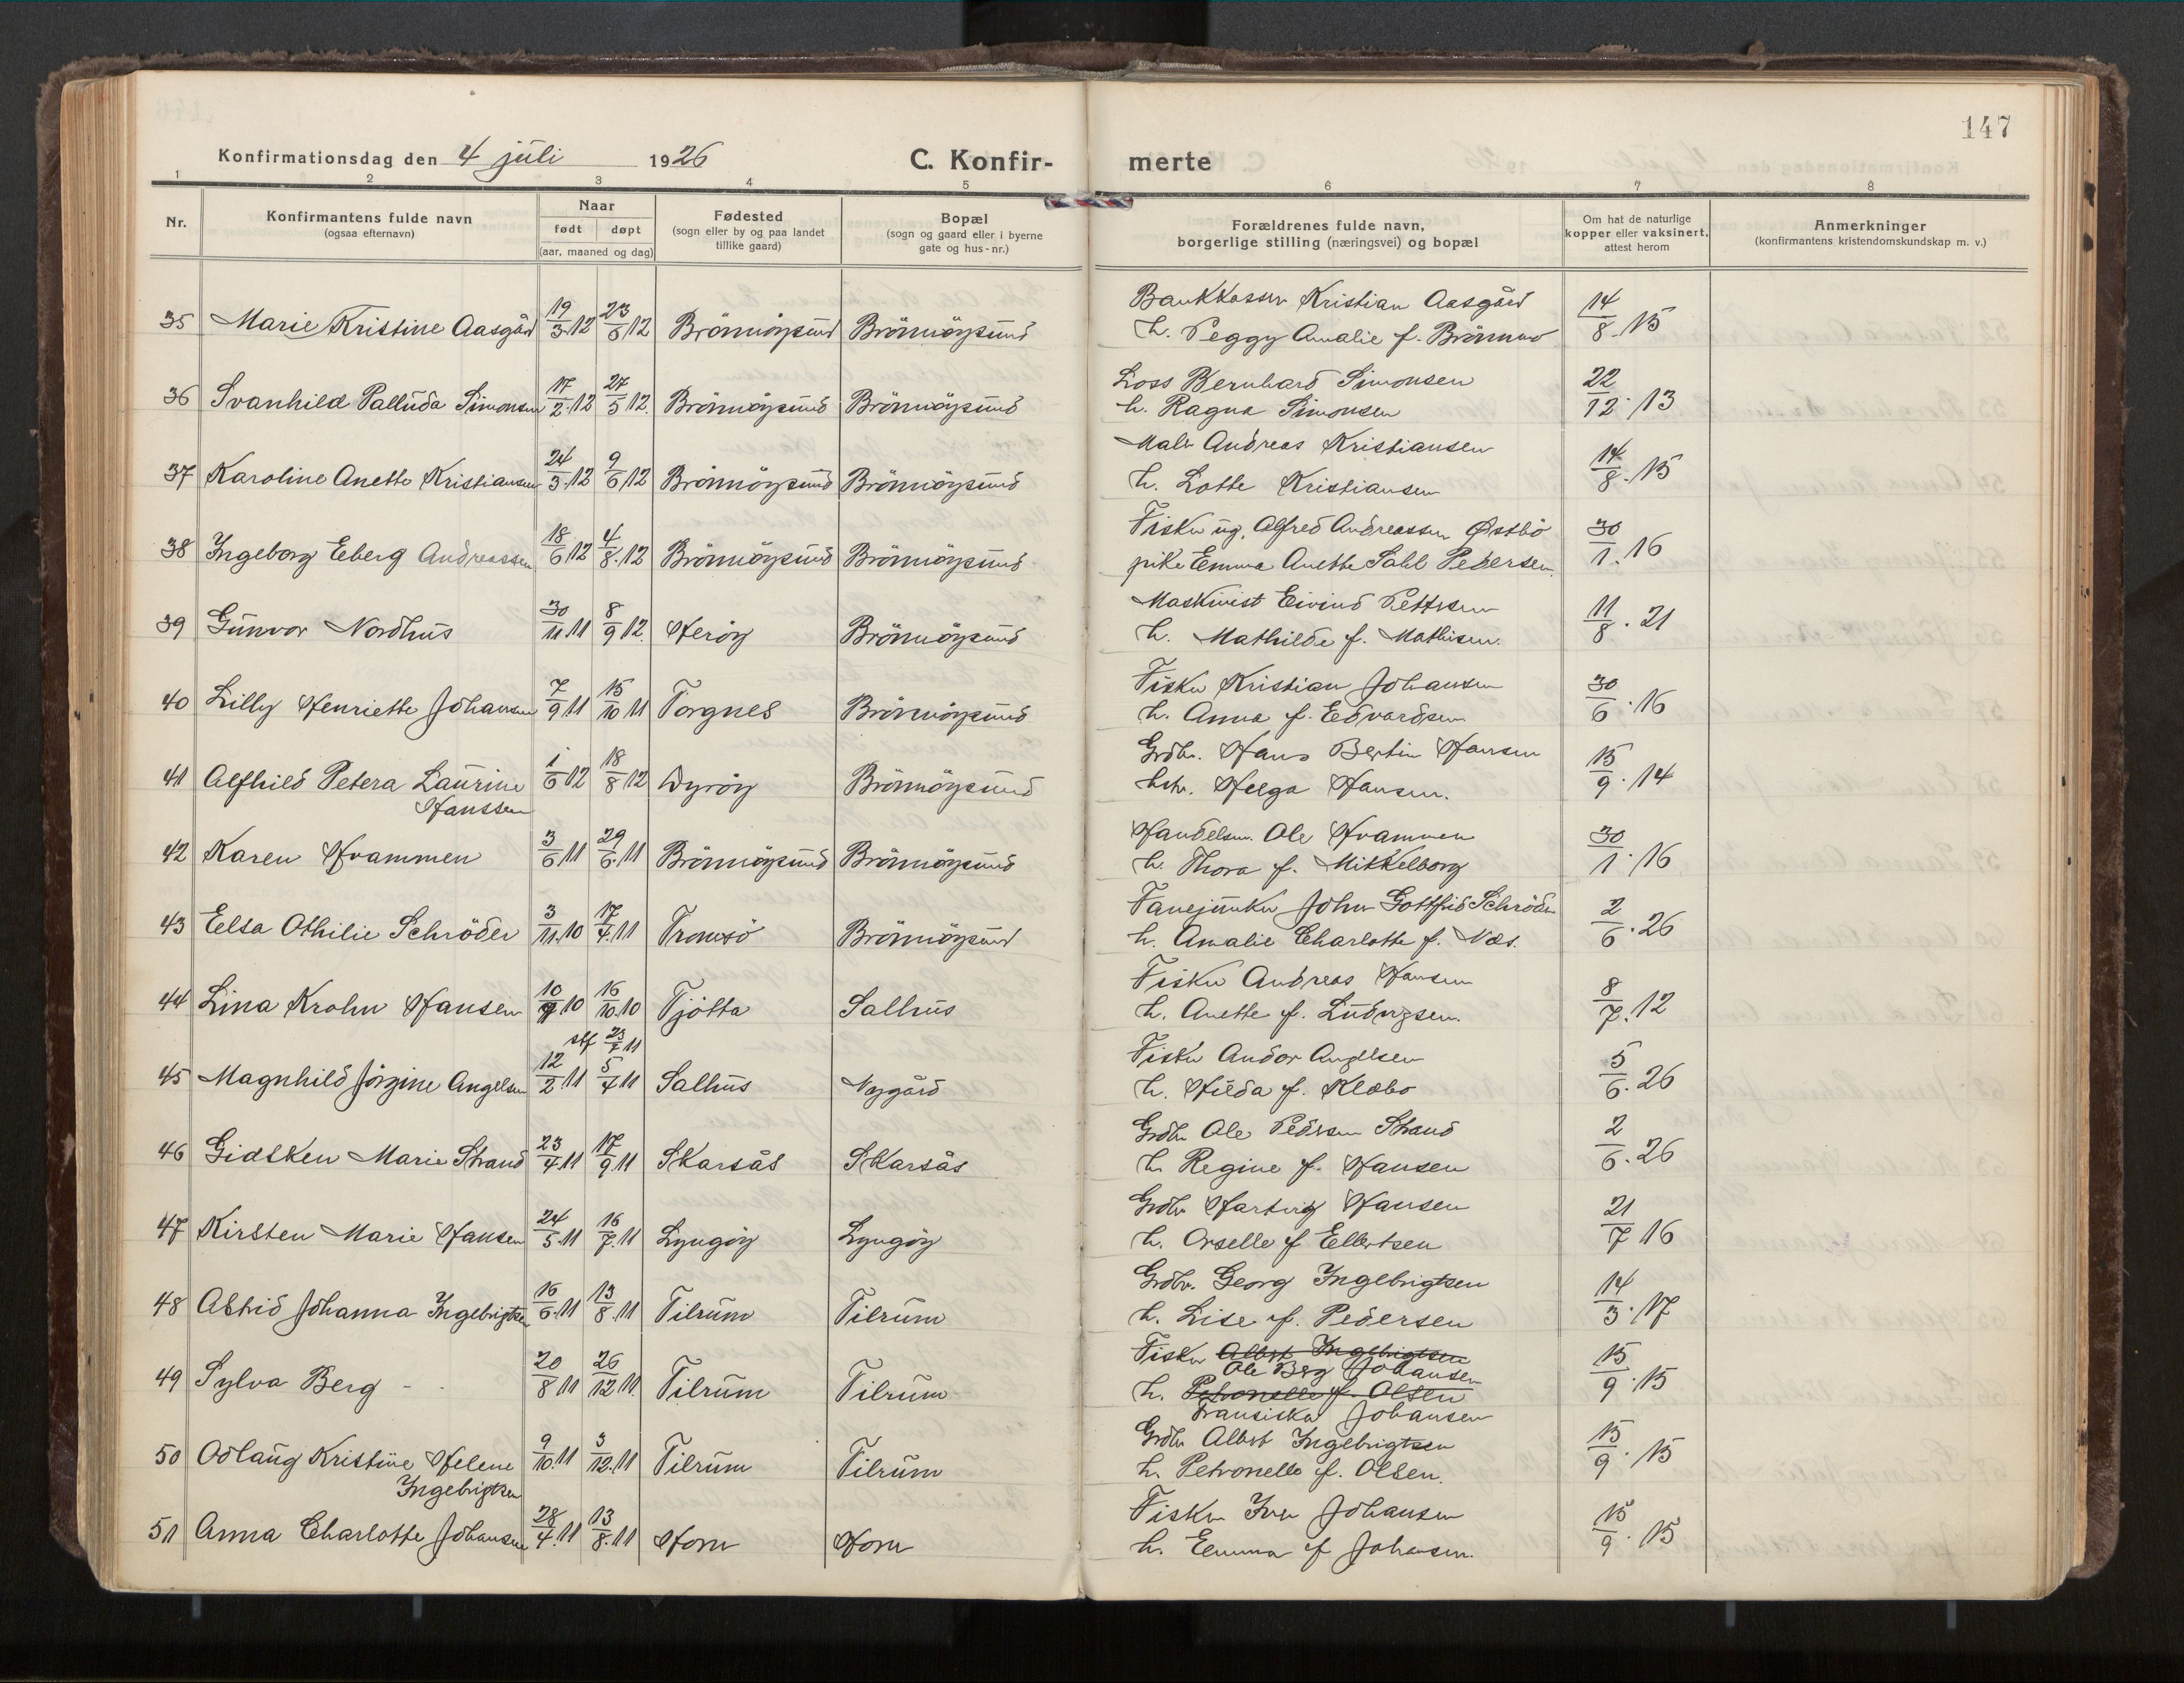 147
Konfirmationsdag den 4 juli 1926
C. Konfirmerte
1 2 3 4 5 6 7 8
Nr.
Konfirmantens fulde navn
(ogsaa efternavn)
Naar
født døpt
(aar, maaned og dag)
Fødested
(sogn eller by og paa landet
tillike gaard)
Bopæl
(sogn og gaard eller i byerne
gate og hus-nr.)
Forældrenes fulde navn,
borgerlige stilling (næringsvei) og bopæl
Om hat de naturlige
kopper eller vaksinert,
attest herom
Anmerkninger
(konfirmantens kristendomskundskap m. v.)
35 Marie Kristine Aasgård 19/3.12 23/6.12 Brönnöysund Brönnöysund
Bankkasser Kristian Aasgård
h. Peggy Amalie f. Brönmo 14/8.15
36 Svanhild Palluda Simonsen 17/2.12 27/5.12. Brönnöysund Brönnöysund
Loss Bernhard Simonsen
h. Ragna Simonsen 22/12.13
37 Karoline Anette Kristiansen 24/3.12 9/6.12 Brönnöysund Brönnöysund
Maler Andreas Kristiansen
h. Lotte Kristiansen 14/8.15
38 Ingeborg Eberg Andreassen 18/6.12 4/8.12 Brönnöysund Brönnöysund
Fisker ug. Alfred Andreassen Østbö
pike Emma Anette Pedersen 30/1.16
39 Gunvor Nordhus 30/11.11 8/9.12. Heröy Brönnöysund
Maskinist Eivind Pettersen
h. Mathilde f. Mathisen. 11/8.21
40 Lilly Henriette Johansen 7/9.11 15/10.11 Torgnes Brönnöysund
Fisker Kristian Johansen
h. Anna f. Edvardsen 30/6.16
41 Alfhild Petera Laurine 1/6.12 18/8.12 Dyröy Brönnöysund
Hanssen
Grdbr. Hans Bertin Hansen
hstr. Helga Hansen. 15/9.14
42 Karen Hvammen 3/6.11 29/6.11 Brönnöysund Brönnöysund
Handelsm. Ole Hvammen
h. Thora f. Mikkelborg 30/1.16
43 Elsa Othilie Schröder 3/11.10 17/4.11 Tromsö Brönnöysund
Fanejunker John Gottfrid Schröder
h. Amalie Charlotte f. Næs. 2/6.26
44 Lina Krohn Hansen 10/9.10 16/10.10 Tjötta Salhus
Fisker Andreas Hansen
h. Anette f. Ludvigsen. 8/7.12
stf 23/7.11
45 Magnhild Jörgine Angelsen 12/2.11 5/4.11 Salhus Nygård
Fisker Andor Angelsen
h. Hilda f. Klæbo 5/6.26
46 Gidsken Marie Strand 23/4.11 17/9.11 Skarsås Skarsås
Grdbr Ole Pedersen Strand
h. Regine f. Hansen 2/6.26
47 Kirsten Marie Hansen 24/5.11 16/7.11 Lyngöy Lyngöy
Grdbr Hartvig Hansen
h. Orselle f Ellertsen 21/7 16
48 Astrid Johanna Ingebrigtsen 16/6.11 13/8.11 Tilrum Tilrum
Grdbr. Georg Ingebrigtsen
h. Lise f. Pedersen 14/3.17
49 Sylva Berg 20/8 11 26/12 11. Tilrum Tilrum
Fisker Albert Ingebrigtsen
Ole Berg Johansen
h. Petronelle f. Olsen
Fransiska Johansen 15/9.15
50 Odlaug Kristine Helene 9/10.11 3/12.11 Tilrum Tilrum
Ingebrigtsen
Grdbr Albert Ingebrigtsen
h. Petronelle f. Olsen. 15/9.15
51 Anna Charlotte Johansen 28/4.11 13/8.11 Horn Horn
Fisker Iver Johansen
h. Emma f Johansen. 15/9.15